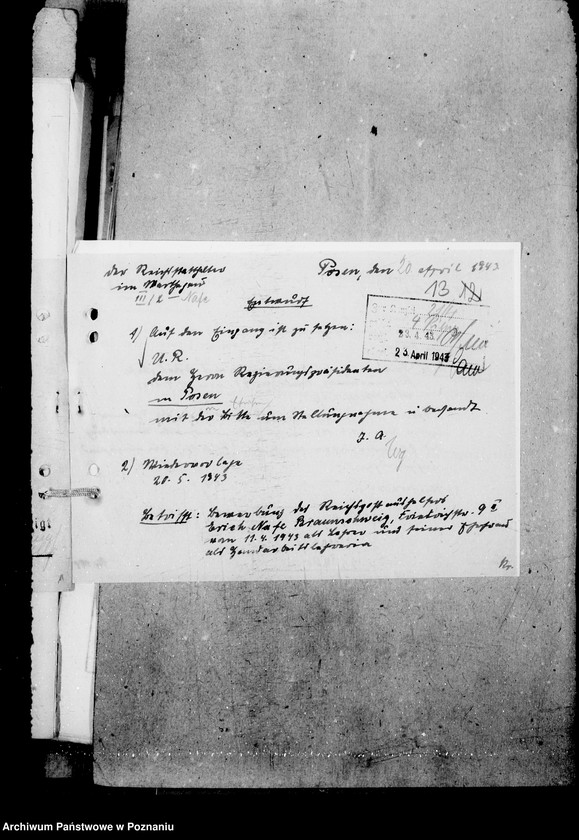 Der Reichsstatthalter
im Warthegau
III/2 – Nafe
Posen, den 20 April 1943
13 12
Entwurf
1) Auf den Eingang ist zu setzen:
U. R.
dem Herrn Regierungspräsidenten
in Posen
mit der Bitte um Stellungnahme u
23.4.43
23. April 1943
J. A.
2) Wiedervorlage
20. 5. 1943
Betrifft: Bewerbung des Reichspostaushelfers
Erich Nafe Braunschweig, Friedrichstr. 9 II
vom 11.4.1943 als Lehrer und seiner Ehefrau
als Handarbeitslehrerin
Archiwum Państwowe w Poznaniu